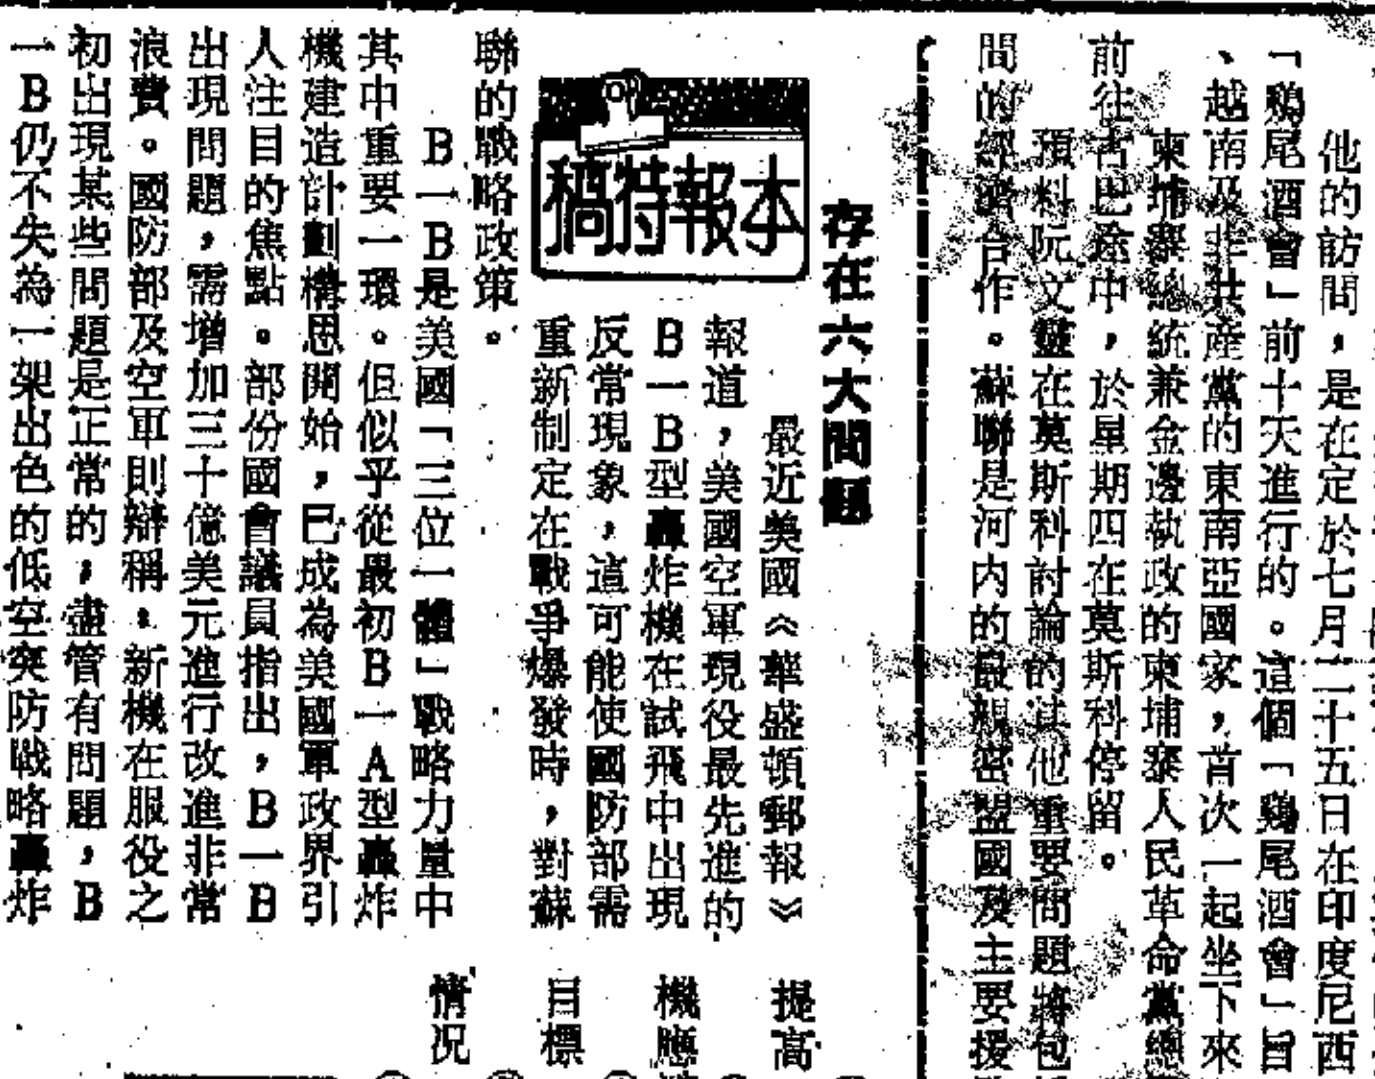 他的訪問，是在定於七月二十五日在印度尼西
「鷄尾酒會」前十天進行的。這個「鷄尾酒會」旨
、越南及非共產黨的東南亞國家，首次一起坐下來
柬埔寨總統兼金邊執政的柬埔寨人民革命黨總
前往古巴途中，於星期四在莫斯科停留。
預料阮文靈在莫斯科討論的其他重要問題將包
間的經濟合作。蘇聯是河內的最親密盟國及主要援
存在六大問題
本報特稿
最近美國《華盛頓郵報》
報道，美國空軍現役最先進的
B一B型轟炸機在試飛中出現
反常現象，這可能使國防部需
重新制定在戰爭爆發時，對蘇
聯的戰略政策。
B一B是美國「三位一體」戰略力量中
其中重要一環。但似乎從最初B一A型轟炸
機建造計劃構思開始，已成為美國軍政界引
人注目的焦點。部份國會議員指出，B一B
出現問題，需增加三十億美元進行改進非常
浪費。國防部及空軍則辯稱：新機在服役之
初出現某些問題是正常的，儘管有問題，B
一B仍不失為一架出色的低空突防戰略轟炸
提高
機應
目標
情況